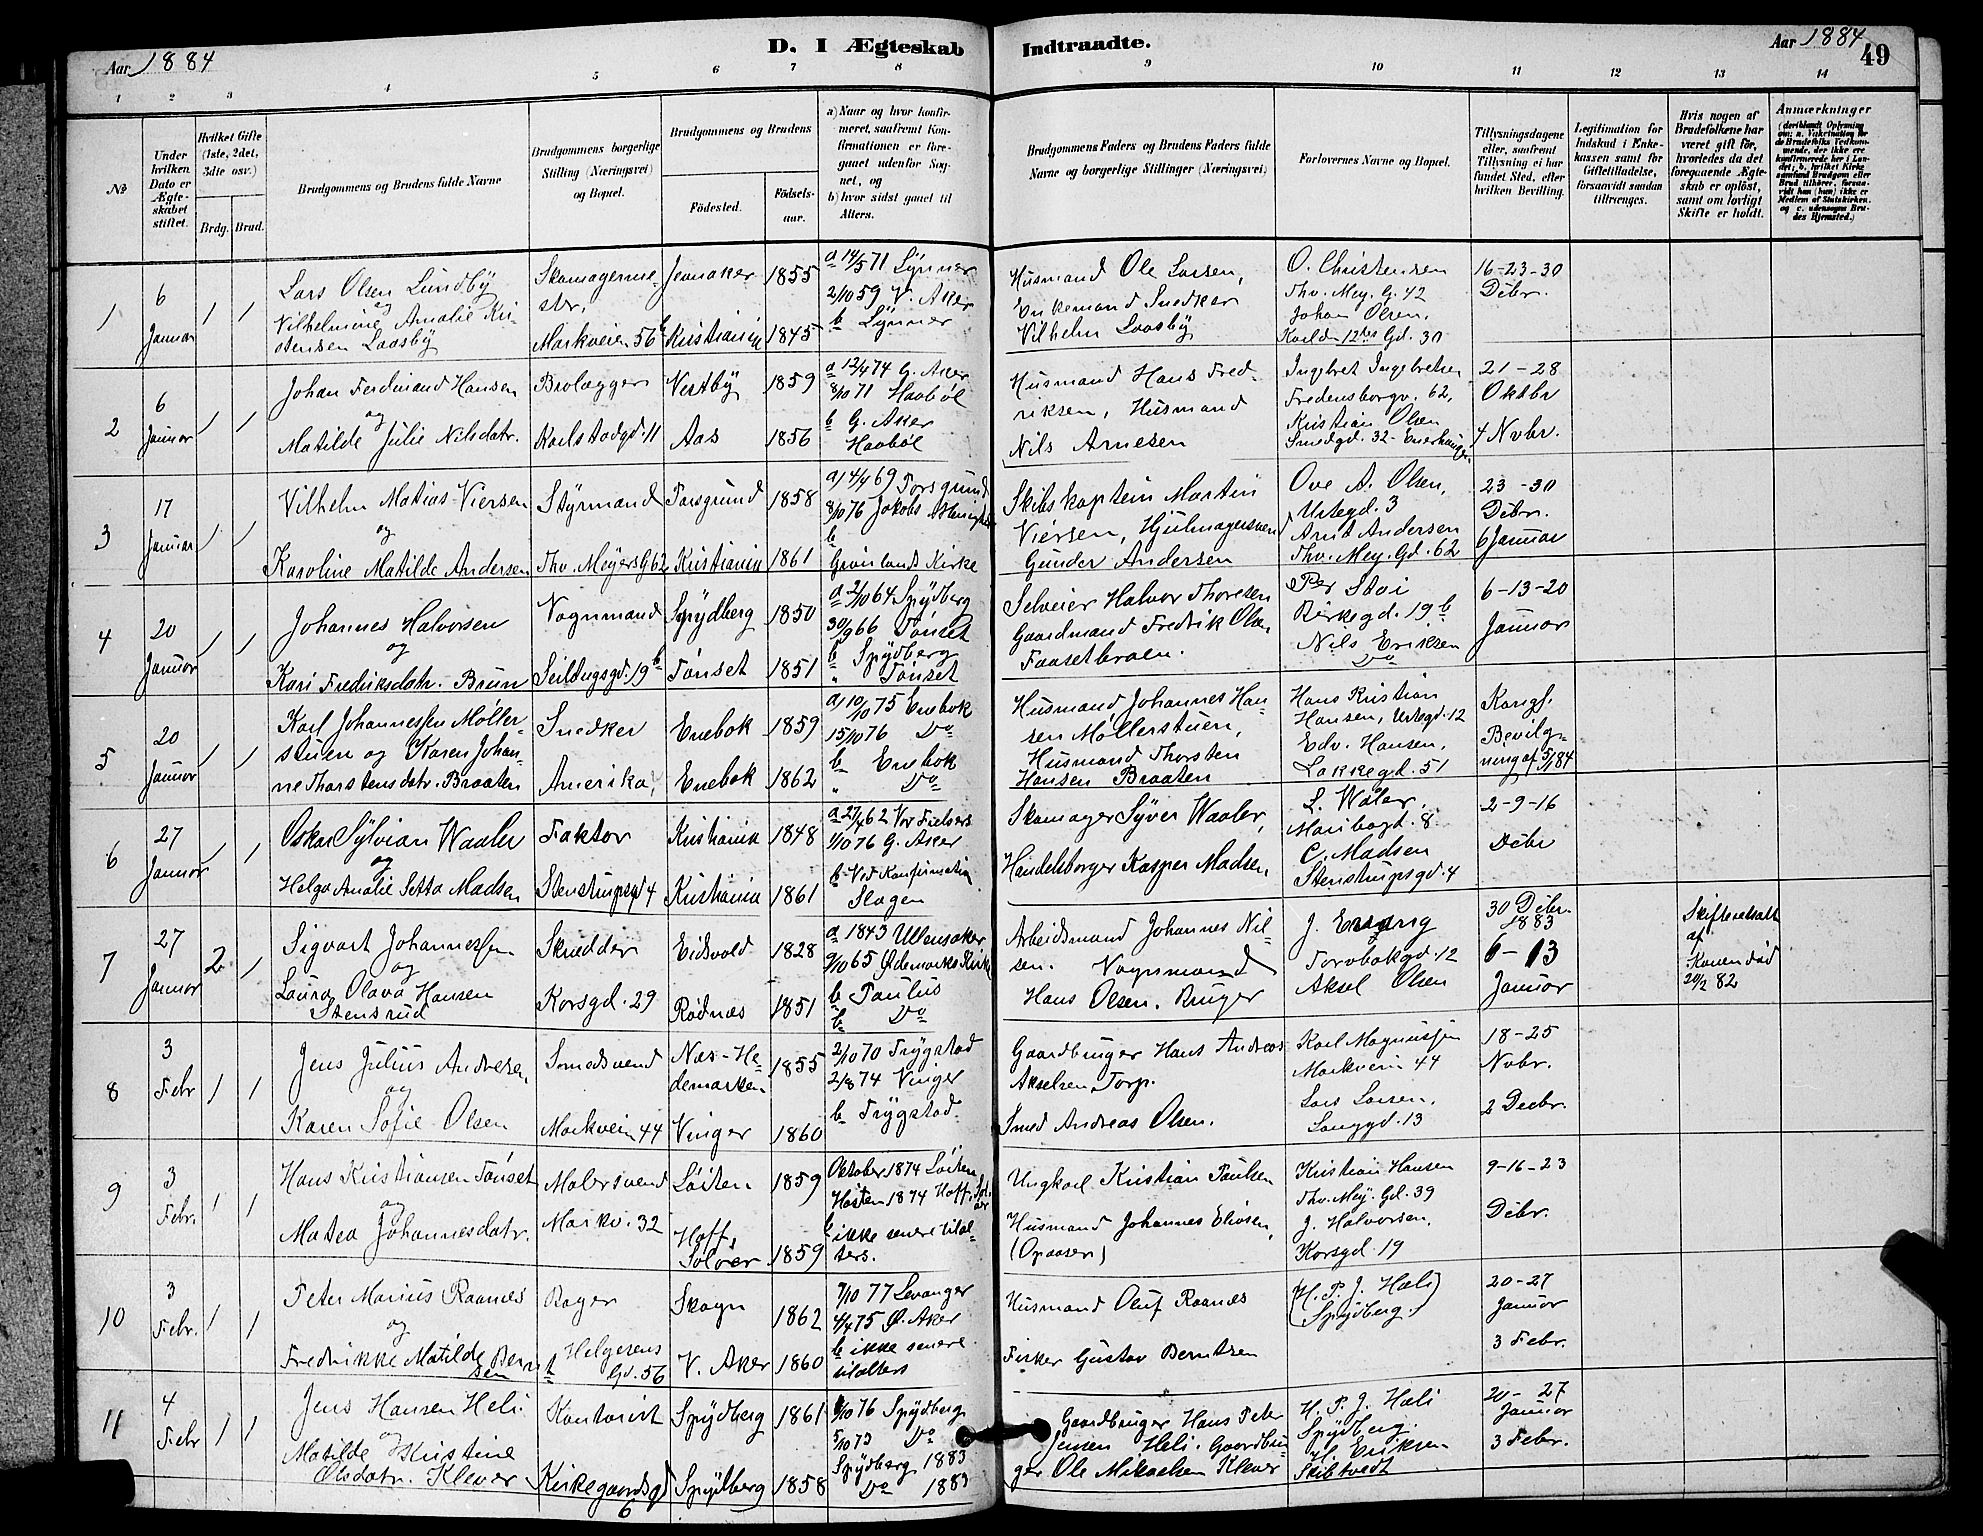 Aar 1884
D. I Ægteskab Indtraadte.
Aar 1884
49
1 2 3 4 5 6 7 8 9 10 11 12 13 14
No
Under hvilken Dato er Ægteskabet stiftet.
Hvilket Gifte (1ste, 2det, 3dte osv.)
Brdg. Brud.
Brudgommens og Brudens fulde Navne
Brudgommens borgerlige Stilling (Næringsvei) og Bopæl.
Brudgommens og Brudens
Fødested.
Fødselsaar.
a) Naar og hvor konfirmeret, saafremt Konfirmationen er foregaaet udenfor Sognet, og
b) hvor sidst gaaet til Alters.
Brudgommens Faders og Brudens Faders fulde Navne og borgerlige Stillinger (Næringsvei)
Forlovernes Navne og Bopæl.
Tillysningsdagene eller, saafremt Tillysning ei har fundet Sted, efter hvilken Bevilling.
Legitimation for Indskud i Enkekassen samt for Giftetilladelse, forsaavidt saadan tiltrænges.
Hvis nogen af Brudefolkene har været gift før, hvorledes da det foregaaende Ægteskab er opløst, samt om lovligt Skifte er holdt.
Anmærkninger
1
6 Januar
1 1
Lars Olsen Lundby
og
Vilhelmine Amalie Kristensen Laasby
Skomagermester,
Markveien 56b
Jevnaker 1855
Kristiania 1845
a 14/5 71 Lynner
2/10 59 V. Aker
b Lynner
Husmand Ole Larsen,
Enkemand Snedker
Vilhelm Laasby
O. Christensen
Thv. Mey. G. 42
Johan Olsen,
Karl den 12tes Gd. 30
16-23-30
Debr.
2
6 Januar
1 1
Johan Ferdinand Hansen
og
Matilde Julie Nilsdatr.
Brolægger
Karlstadgd. 11
Vestby 1859
Aas 1856
a 12/4 74 G. Aker
8/10 71 Haabøl
b G. Aker
Haabøl
Husmand Hans Fredriksen, Husmand
Nils Arnesen
Ingebret Ingebretsen
Fredensborgv. 62,
Kristian Olsen
Smedgd. 32 - Enerhaugen
21-28
Oktbr
4 Nvbr.
3
17 Januar
1 1
Vilhelm Matias Viersen
og
Karoline Matilde Andersen
Styrmand
Thv. Meyers G 62
Porsgrund 1858
Kristiania 1861
a 14/4 69 Porsgrund
8/10 76 Jakobs
b
Grønlands Kirke
Skibskaptein Martin
Viersen, Hjulmagersvend
Gunder Andersen
Ove A. Olsen,
Urtegd. 3
Arnt Andersen
Thv. Mey. Gd. 62
23-30
Debr.
6 Januar
4
20 Januar
1 1
Johannes Halvorsen
og
Kari Fredriksdatr. Brun
Vognmand
Seildugsgd. 19b
Spydberg 1850
Tønset 1851
a 2/10 64 Spydberg
30/9 66 Tønset
b Spydberg
" Tønset
Selveier Halvor Thoresen
Gaardmand Fredrik Olsen
Faasetbraen.
Per Stai
Birkegd. 19b
Nils Eriksen
Do
6-13-20
Januar
5
20 Januar
1 1
Karl Johannessen Møllerstuen og Karen Johanne Thorstensdatr. Braaten
Snedker
Amerika
Enebok 1859
Enebok 1862
a 10/10 75 Enebok
15/10 76 Do
b Enebok
" Do
Husmand Johannes Hansen Møllerstuen,
Husmand Thorsten
Hansen Braaten
Hans Kristian
Hansen, Urtegd. 12
Edv. Hansen,
Lakkegd. 51
Kongl.
Bevilgning af 5/1 84
6
27 Januar
1 1
Oskar Sylvian Waaler
og
Helga Amalie Setta Madsen
Faktor
Stenstrupsgd 4
Kristiania 1848
Kristiania 1861
a 27/4 62 Vor Frelsers
1/10 76 G. Aker
b Ved Konfirmation
Slagen
Skomager Syver Waaler,
Handelsborger Kasper Madsen,
L. Waler,
Maribogd. 8.
C. Madsen
Stenstrupsgd. 4
2-9-16
Debr
7
27 Januar
2 1
Sigvart Johannessen
og
Laura Olava Hansen
Stensrud
Skrædder
Korsgd. 29
Eidsvold 1828
Rødnæs 1851
a 1843 Ullensaker
9/10 65 Ødemarks Kirke
b Paulus
b Do
Arbeidsmand Johannes Nilsen. Vognmand
Hans Olsen. Bruger
J. Enerig
Torvbakgd. 12
Aksel Olsen
30 Debr.
1883
6-13
Januar
Skifteretsatt
af
Konen død
20/2 82
8
3 Febr
1 1
Jens Julius Andresen,
og
Karen Sofie Olsen
Smedsvend
Markveien 44
Næs-Hedemarken 1855
Vinger 1860
2/10 70 Trygstad
2/8 74 Vinger
b Trygstad.
Gaardbruger Hans Andreas
Akselsen Torp.
Smed Andreas Olsen.
Karl Magnussen
Markveien 44
Lars Larsen,
Langgd. 13
18-25
Nvbr.
2 Decbr.
9
3 Febr.
1 1
Hans Kristiansen Tønset
og
Matea Johannesdatr.
Malersvend
Markv. 32
Løiten 1859
Hoff, Soløer 1859
Oktober 1874 Løiten
Høsten 1874 Hoff, Solør
b ikke senere tilalters.
Ungkarl Kristian Paulsen
Husmand Johannes Elivsen,
(Opaasen)
Kristian Hansen
Thv. Mey. Gd. 39
J. Halvorsen,
Korsgd. 19
9-16-23
Debr.
10
3 Febr.
1 1
Peter Marius Raanæs
og
Fredrikke Matilde Berntsen
Bager
Helgesens Gd. 56
Skogn 1862
V. Aker 1860
7/10 77 Levanger
4/4 75 Ø. Aker
b ikke senere
tilalters
Husmand Oluf Raanæs
Fisker Gustav Berntsen
(H. P. J. Hæli)
(Spydberg.)
20-27
Januar
3 Febr.
11
4 Febr
1 1
Jens Hansen Heli
og
Matilde Kristine
Olsdatr. Klever
Kontorist
Kirkegaardsgd 6
Spydberg 1861
Spydberg 1858
1/10 76 Spydberg
5/10 73 Do
Spydberg 1883
Do 1883
Gaardbruger Hans Peter
Jensen Heli. Gaardbruger Ole Mikaelsen Klever
H. P. J. Hæli
Spydberg
H. Eriksen
Skibtvedt
20-27
Januar
3 Febr.